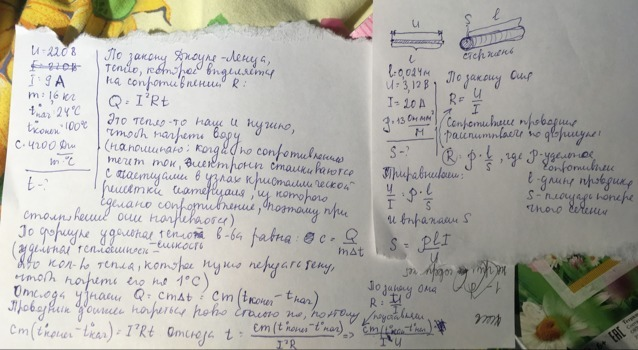 U=220В
I=9А
m=1,6 кг
t°нач=24°С
t°конеч=100°С
c=4200 Дж
m·°С
t-?
По закону Джоуля-Ленца,
тепло, которое выделяется
на сопротивлении R:
Q=I²Rt
Это тепло-то нам и нужно,
чтоб нагреть воду
(напоминаю: когда по сопротивлению
течет ток, электроны сталкиваются
с частицами в узлах кристаллической
решетки материала, из которого
сделано сопротивление, поэтому при
столкновении они нагреваются)
По формуле удельная в-ва равна: c=Q
m∆t
(удельная теплоемкость
это кол-во тепла, которое нужно передать телу,
чтоб нагреть его на 1°С)
Отсюда узнаем Q=cm∆t=cm(t°конеч-t°нач)
Проводник должен нагреться ровно столько же, поэтому
cm(t°конеч-t°нач)=I²Rt Отсюда t=cm(t°конеч-t°нач)
I²R
=>
По закону Ома
R=U
I
подставим
cm(t°кон-t°нач)
I U
U
l
S
l
стержень
l=0,024м
U=3,12В
I=20А
Ом·мм²
м
S-?
По закону Ома
R=U
I
Сопротивление проводника
рассчитывают по формуле:
R=ρ·l
S
, где ρ-удельное
сопротивлен
l-длина проводника
S-площадь попере
чного сечения
Приравниваем:
U
I
=ρ·l
S
и выражаем S
S=ρlI
U